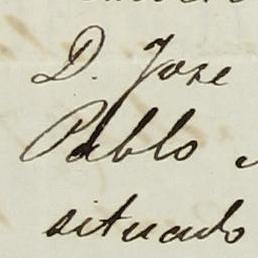 D. Jose
Pablo
situado